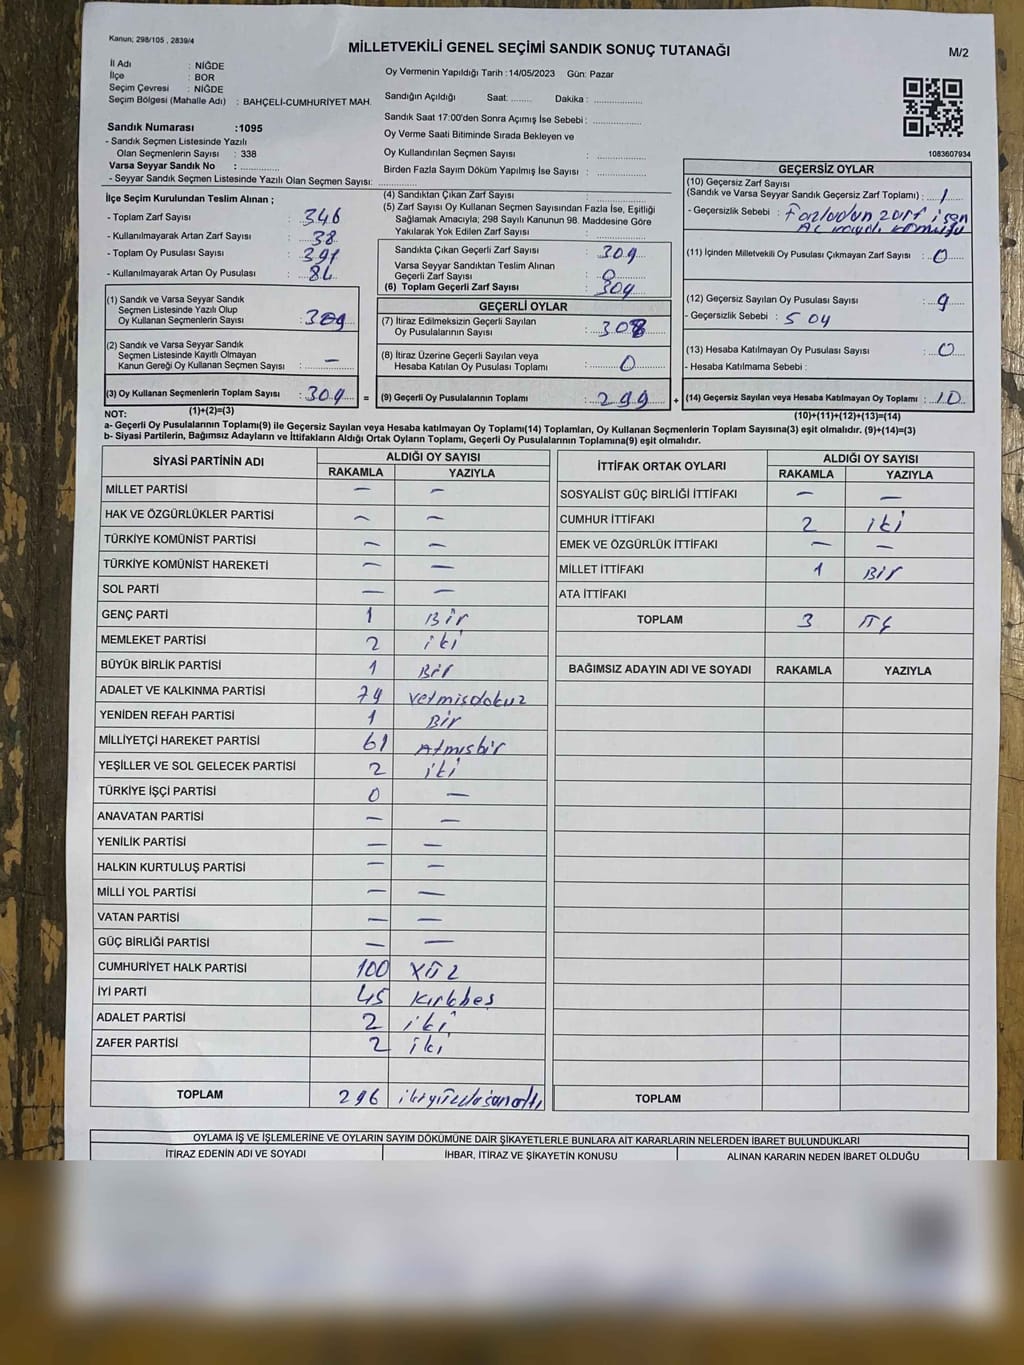 Kanun; 298/105 , 2839/4
MİLLETVEKİLİ GENEL SEÇİMİ SANDIK SONUÇ TUTANAĞI
M/2
İl Adı : NİĞDE
İlçe : BOR
Seçim Çevresi : NİĞDE
Seçim Bölgesi (Mahalle Adı) : BAHÇELİ-CUMHURİYET MAH.
Oy Vermenin Yapıldığı Tarih :14/05/2023 Gün: Pazar
Sandığın Açıldığı Saat: ........ Dakika : ..................
Sandık Saat 17:00'den Sonra Açımış İse Sebebi : ..................
Oy Verme Saati Bitiminde Sırada Bekleyen ve
Oy Kullandırılan Seçmen Sayısı : ..................
Birden Fazla Sayım Döküm Yapılmış İse Sayısı : ..................
Sandık Numarası :1095
- Sandık Seçmen Listesinde Yazılı
Olan Seçmenlerin Sayısı : 338
Varsa Seyyar Sandık No : ..................
- Seyyar Sandık Seçmen Listesinde Yazılı Olan Seçmen Sayısı: ..................
1083607934
İlçe Seçim Kurulundan Teslim Alınan ;
- Toplam Zarf Sayısı : 346
- Kullanılmayarak Artan Zarf Sayısı : 38
- Toplam Oy Pusulası Sayısı : 391
- Kullanılmayarak Artan Oy Pusulası :
(1) Sandık ve Varsa Seyyar Sandık
Seçmen Listesinde Yazılı Olup
Oy Kullanan Seçmenlerin Sayısı : 309
(2) Sandık ve Varsa Seyyar Sandık
Seçmen Listesinde Kayıtlı Olmayan
Kanun Gereği Oy Kullanan Seçmen Sayısı : —
(3) Oy Kullanan Seçmenlerin Toplam Sayısı : 309 =
(1)+(2)=(3)
(4) Sandıktan Çıkan Zarf Sayısı : ..................
(5) Zarf Sayısı Oy Kullanan Seçmen Sayısından Fazla İse, Eşitliği
Sağlamak Amacıyla; 298 Sayılı Kanunun 98. Maddesine Göre
Yakılarak Yok Edilen Zarf Sayısı : ..................
Sandıkta Çıkan Geçerli Zarf Sayısı : 309
Varsa Seyyar Sandıktan Teslim Alınan
Geçerli Zarf Sayısı : 0
(6) Toplam Geçerli Zarf Sayısı : 309
GEÇERLİ OYLAR
(7) İtiraz Edilmeksizin Geçerli Sayılan
Oy Pusulalarının Sayısı : 308
(8) İtiraz Üzerine Geçerli Sayılan veya
Hesaba Katılan Oy Pusulası Toplamı : 0
(9) Geçerli Oy Pusulalarının Toplamı : 299 +
GEÇERSİZ OYLAR
(10) Geçersiz Zarf Sayısı
(Sandık ve Varsa Seyyar Sandık Geçersiz Zarf Toplamı) : 1
- Geçersizlik Sebebi : Fazladan zarf için
(11) İçinden Milletvekili Oy Pusulası Çıkmayan Zarf Sayısı : 0
(12) Geçersiz Sayılan Oy Pusulası Sayısı : 9
- Geçersizlik Sebebi :
(13) Hesaba Katılmayan Oy Pusulası Sayısı : 0
- Hesaba Katılmama Sebebi :
(14) Geçersiz Sayılan veya Hesaba Katılmayan Oy Toplamı : 10
(10)+(11)+(12)+(13)=(14)
NOT:
a- Geçerli Oy Pusulalarının Toplamı(9) ile Geçersiz Sayılan veya Hesaba katılmayan Oy Toplamı(14) Toplamları, Oy Kullanan Seçmenlerin Toplam Sayısına(3) eşit olmalıdır. (9)+(14)=(3)
b- Siyasi Partilerin, Bağımsız Adayların ve İttifakların Aldığı Ortak Oyların Toplamı, Geçerli Oy Pusulalarının Toplamına(9) eşit olmalıdır.
SİYASİ PARTİNİN ADI ALDIĞI OY SAYISI
RAKAMLA YAZIYLA
MİLLET PARTİSİ — —
HAK VE ÖZGÜRLÜKLER PARTİSİ — —
TÜRKİYE KOMÜNİST PARTİSİ — —
TÜRKİYE KOMÜNİST HAREKETİ — —
SOL PARTİ — —
GENÇ PARTİ 1 Bir
MEMLEKET PARTİSİ 2 iki
BÜYÜK BİRLİK PARTİSİ 1 Bir
ADALET VE KALKINMA PARTİSİ 79 yetmisdokuz
YENİDEN REFAH PARTİSİ 1 Bir
MİLLİYETÇİ HAREKET PARTİSİ 61 Atmısbir
YEŞİLLER VE SOL GELECEK PARTİSİ 2 iki
TÜRKİYE İŞÇİ PARTİSİ 0 —
ANAVATAN PARTİSİ — —
YENİLİK PARTİSİ — —
HALKIN KURTULUŞ PARTİSİ — —
MİLLİ YOL PARTİSİ — —
VATAN PARTİSİ — —
GÜÇ BİRLİĞİ PARTİSİ — —
CUMHURİYET HALK PARTİSİ 100 YÜZ
İYİ PARTİ 45 Kırkbeş
ADALET PARTİSİ 2 iki
ZAFER PARTİSİ 2 iki
TOPLAM 296 ikiyüzdoksanaltı
İTTİFAK ORTAK OYLARI ALDIĞI OY SAYISI
RAKAMLA YAZIYLA
SOSYALİST GÜÇ BİRLİĞİ İTTİFAKI — —
CUMHUR İTTİFAKI 2 iki
EMEK VE ÖZGÜRLÜK İTTİFAKI — —
MİLLET İTTİFAKI 1 Bir
ATA İTTİFAKI
TOPLAM 3 ÜÇ
BAĞIMSIZ ADAYIN ADI VE SOYADI RAKAMLA YAZIYLA
TOPLAM
OYLAMA İŞ VE İŞLEMLERİNE VE OYLARIN SAYIM DÖKÜMÜNE DAİR ŞİKAYETLERLE BUNLARA AİT KARARLARIN NELERDEN İBARET BULUNDUKLARI
İTİRAZ EDENİN ADI VE SOYADI İHBAR, İTİRAZ VE ŞİKAYETİN KONUSU ALINAN KARARIN NEDEN İBARET OLDUĞU